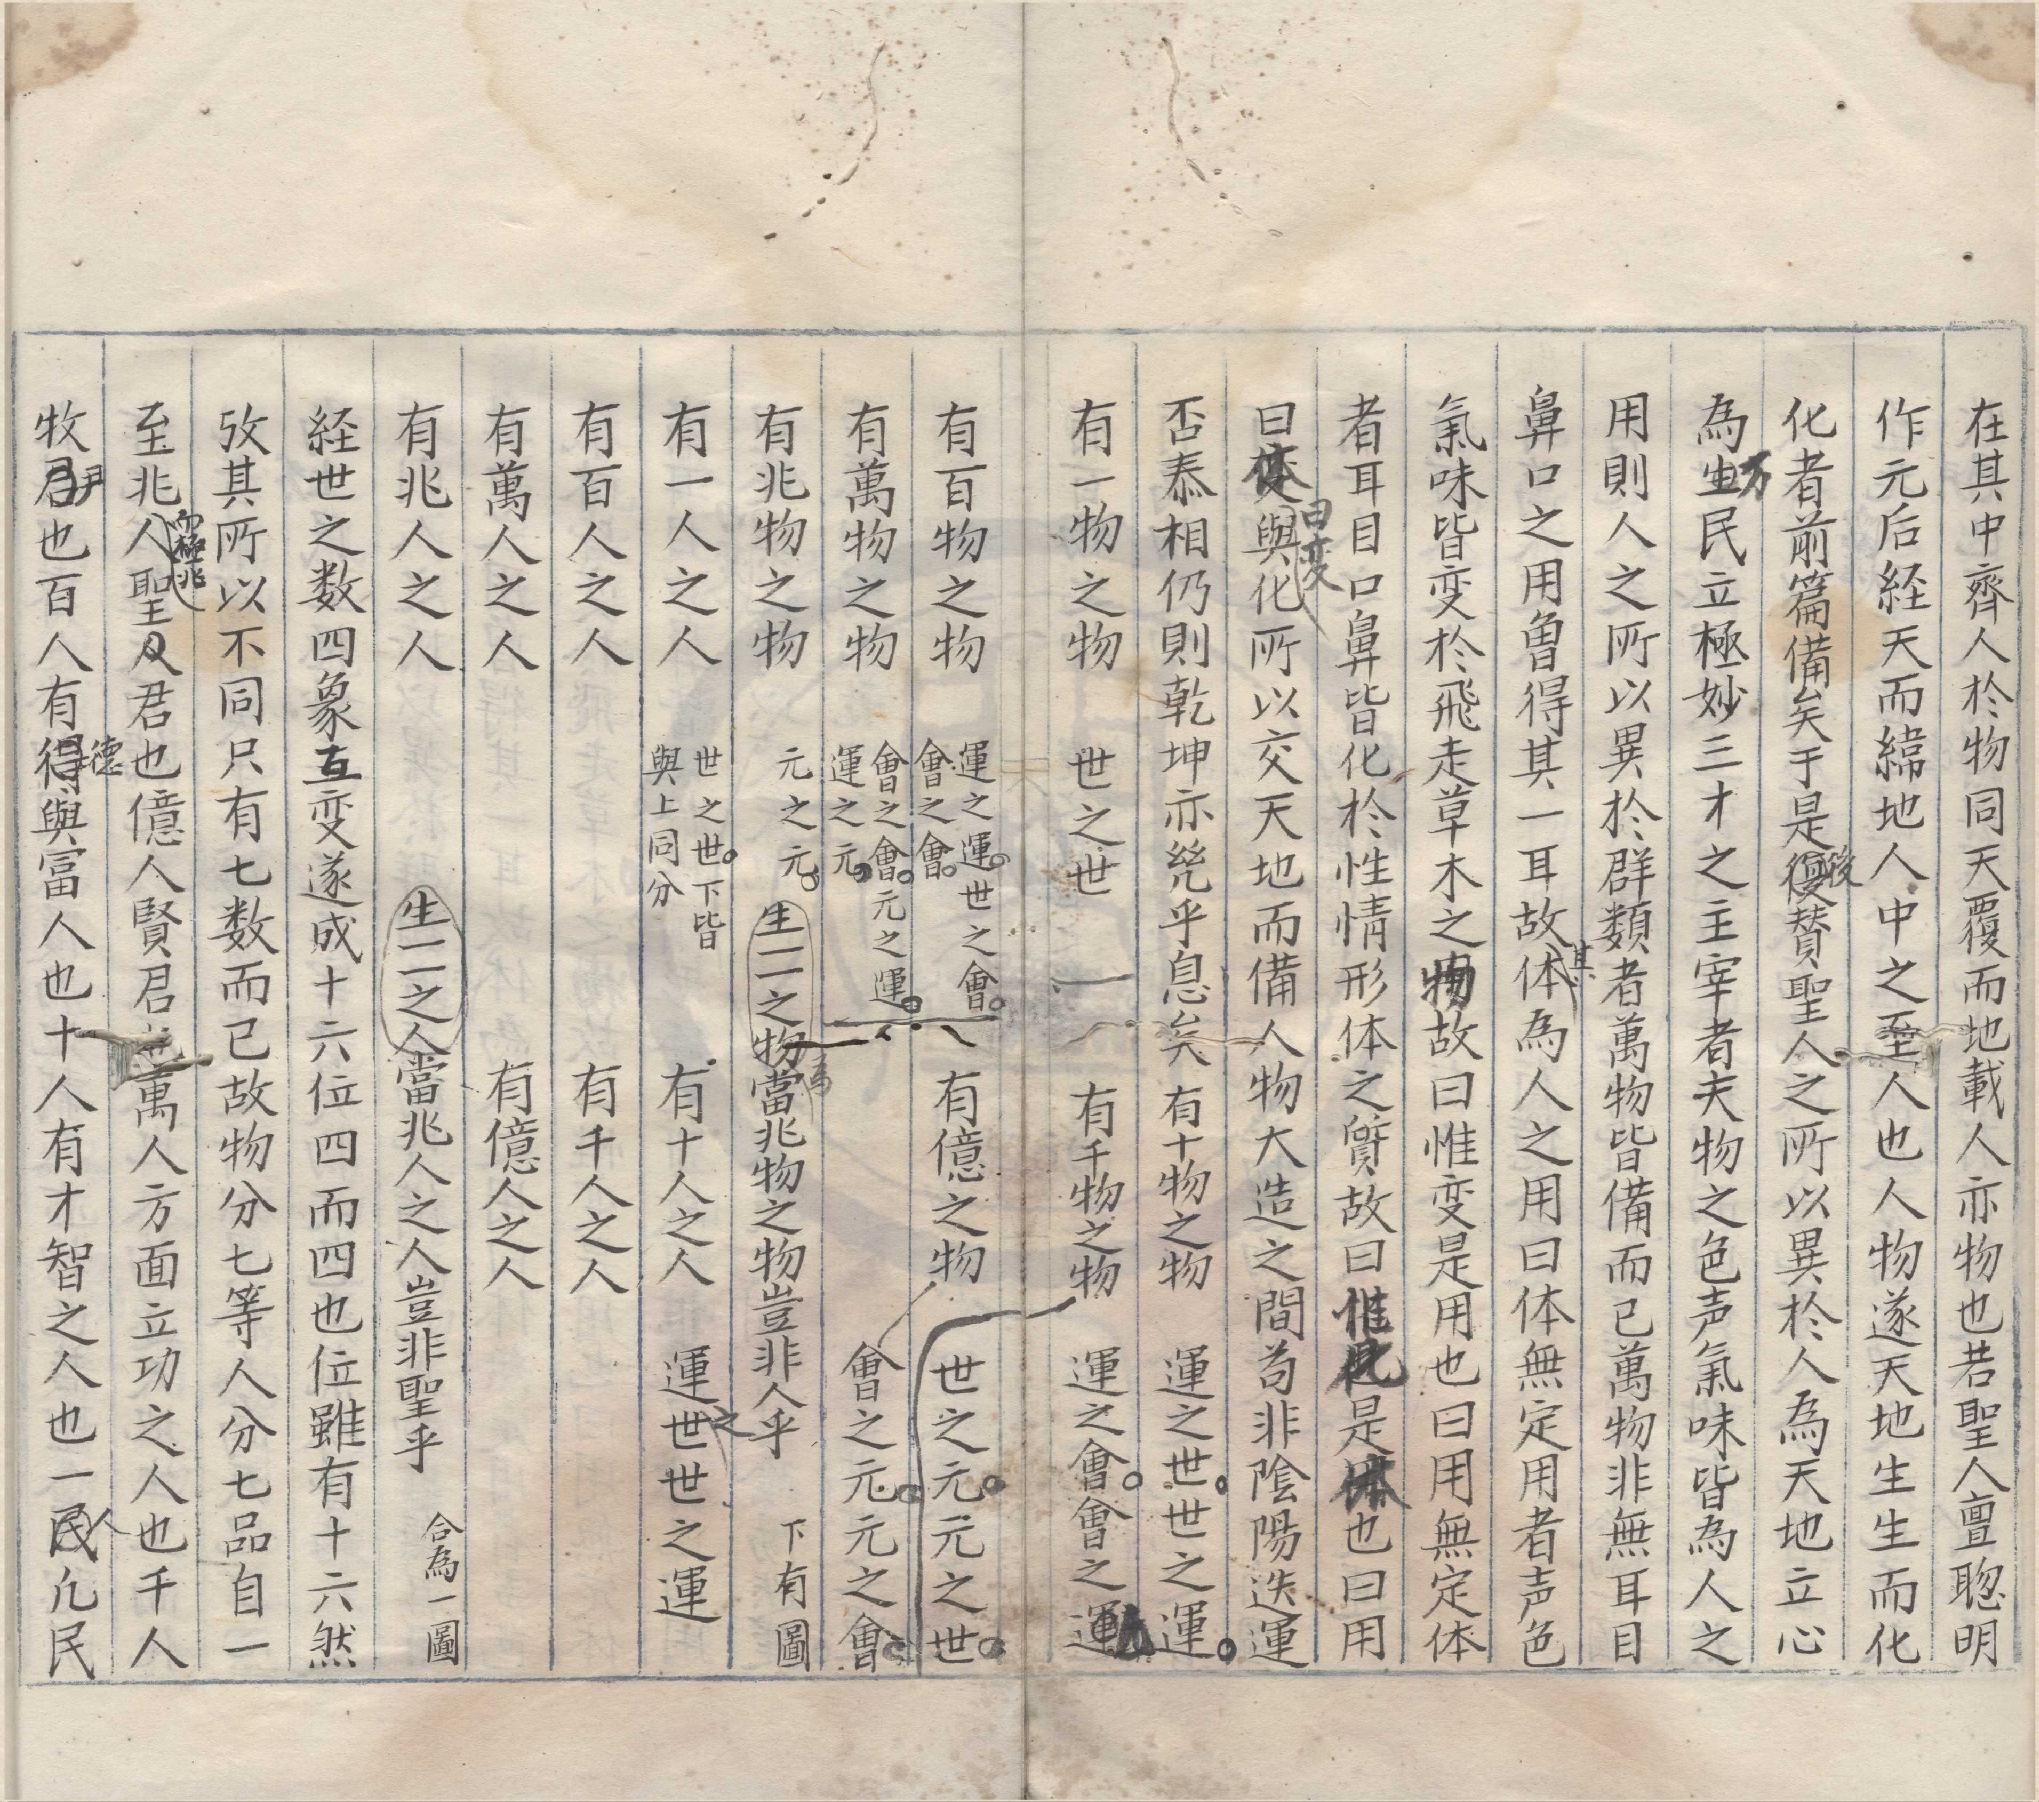 在其中齊人於物同天覆而地載人亦物也若聖人亶聡明
作元后経天而緯地人中之至人也人物遂天地生生而化
化者前篇備矣于是後賛聖人之所以異於人為天地立心
為生万民立極妙三才之主宰者夫物之色声氣味皆為人之
用則人之所以異於群類者萬物皆備而已萬物非無耳目
鼻口之用魯得其一耳故其体為人之用曰体無定用者声色
氣味皆变於飛走草木之物故曰惟变是用也曰用無定体
者耳目口鼻皆化於性情形体之質故曰惟化是体也曰用
曰变與化所以交天地而備人物大造之間苟非陰陽迭運
曰变
否泰相仍則乾坤亦㡬乎息矣 有十物之物 運之世世之運
有一物之物 世之世 有千物之物 運之會會之運
有百物之物 運之運世之會 會之會 有億之物 世之元元之世
有萬物之物 會之會元之運 運之元 會之元元之會
有兆物之物 元之元 生一一之物當為兆物之物豈非人乎 下有圖
有一人之人 世之世下皆 與上同分 有十人之人 運之世世之運
有百人之人 有千人之人
有萬人之人 有億人之人
有兆人之人 生一一之人當兆人之人豈非聖乎 合為一圖
経世之数四象互变遂成十六位四而四也位雖有十六然
攷其所以不同只有七数而已故物分七等人分七品自一
至兆人聖人君也億人賢君也萬人方面立功之人也千人
牧尹也百人有德與富人也十人有才智之人也一人凢民